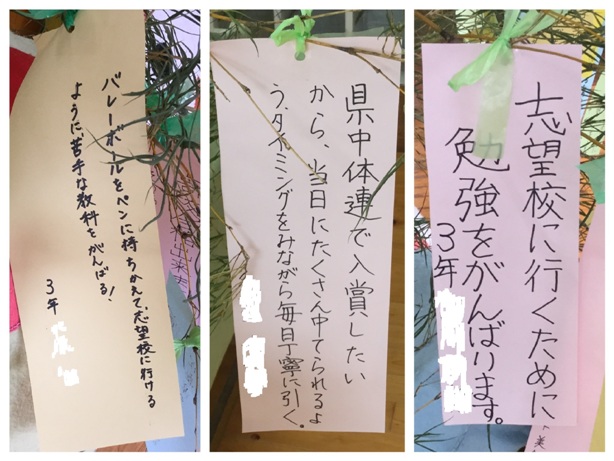 バレーボールをペンに持ちかえて、志望校に行ける
ように、苦手な教科をがんばる！
3年
県中体連で入賞したい
から、当日にたくさん中てられるよ
う、タイミングをみながら毎日丁寧に引く。
志望校に行くために
勉強をがんばります。
3年